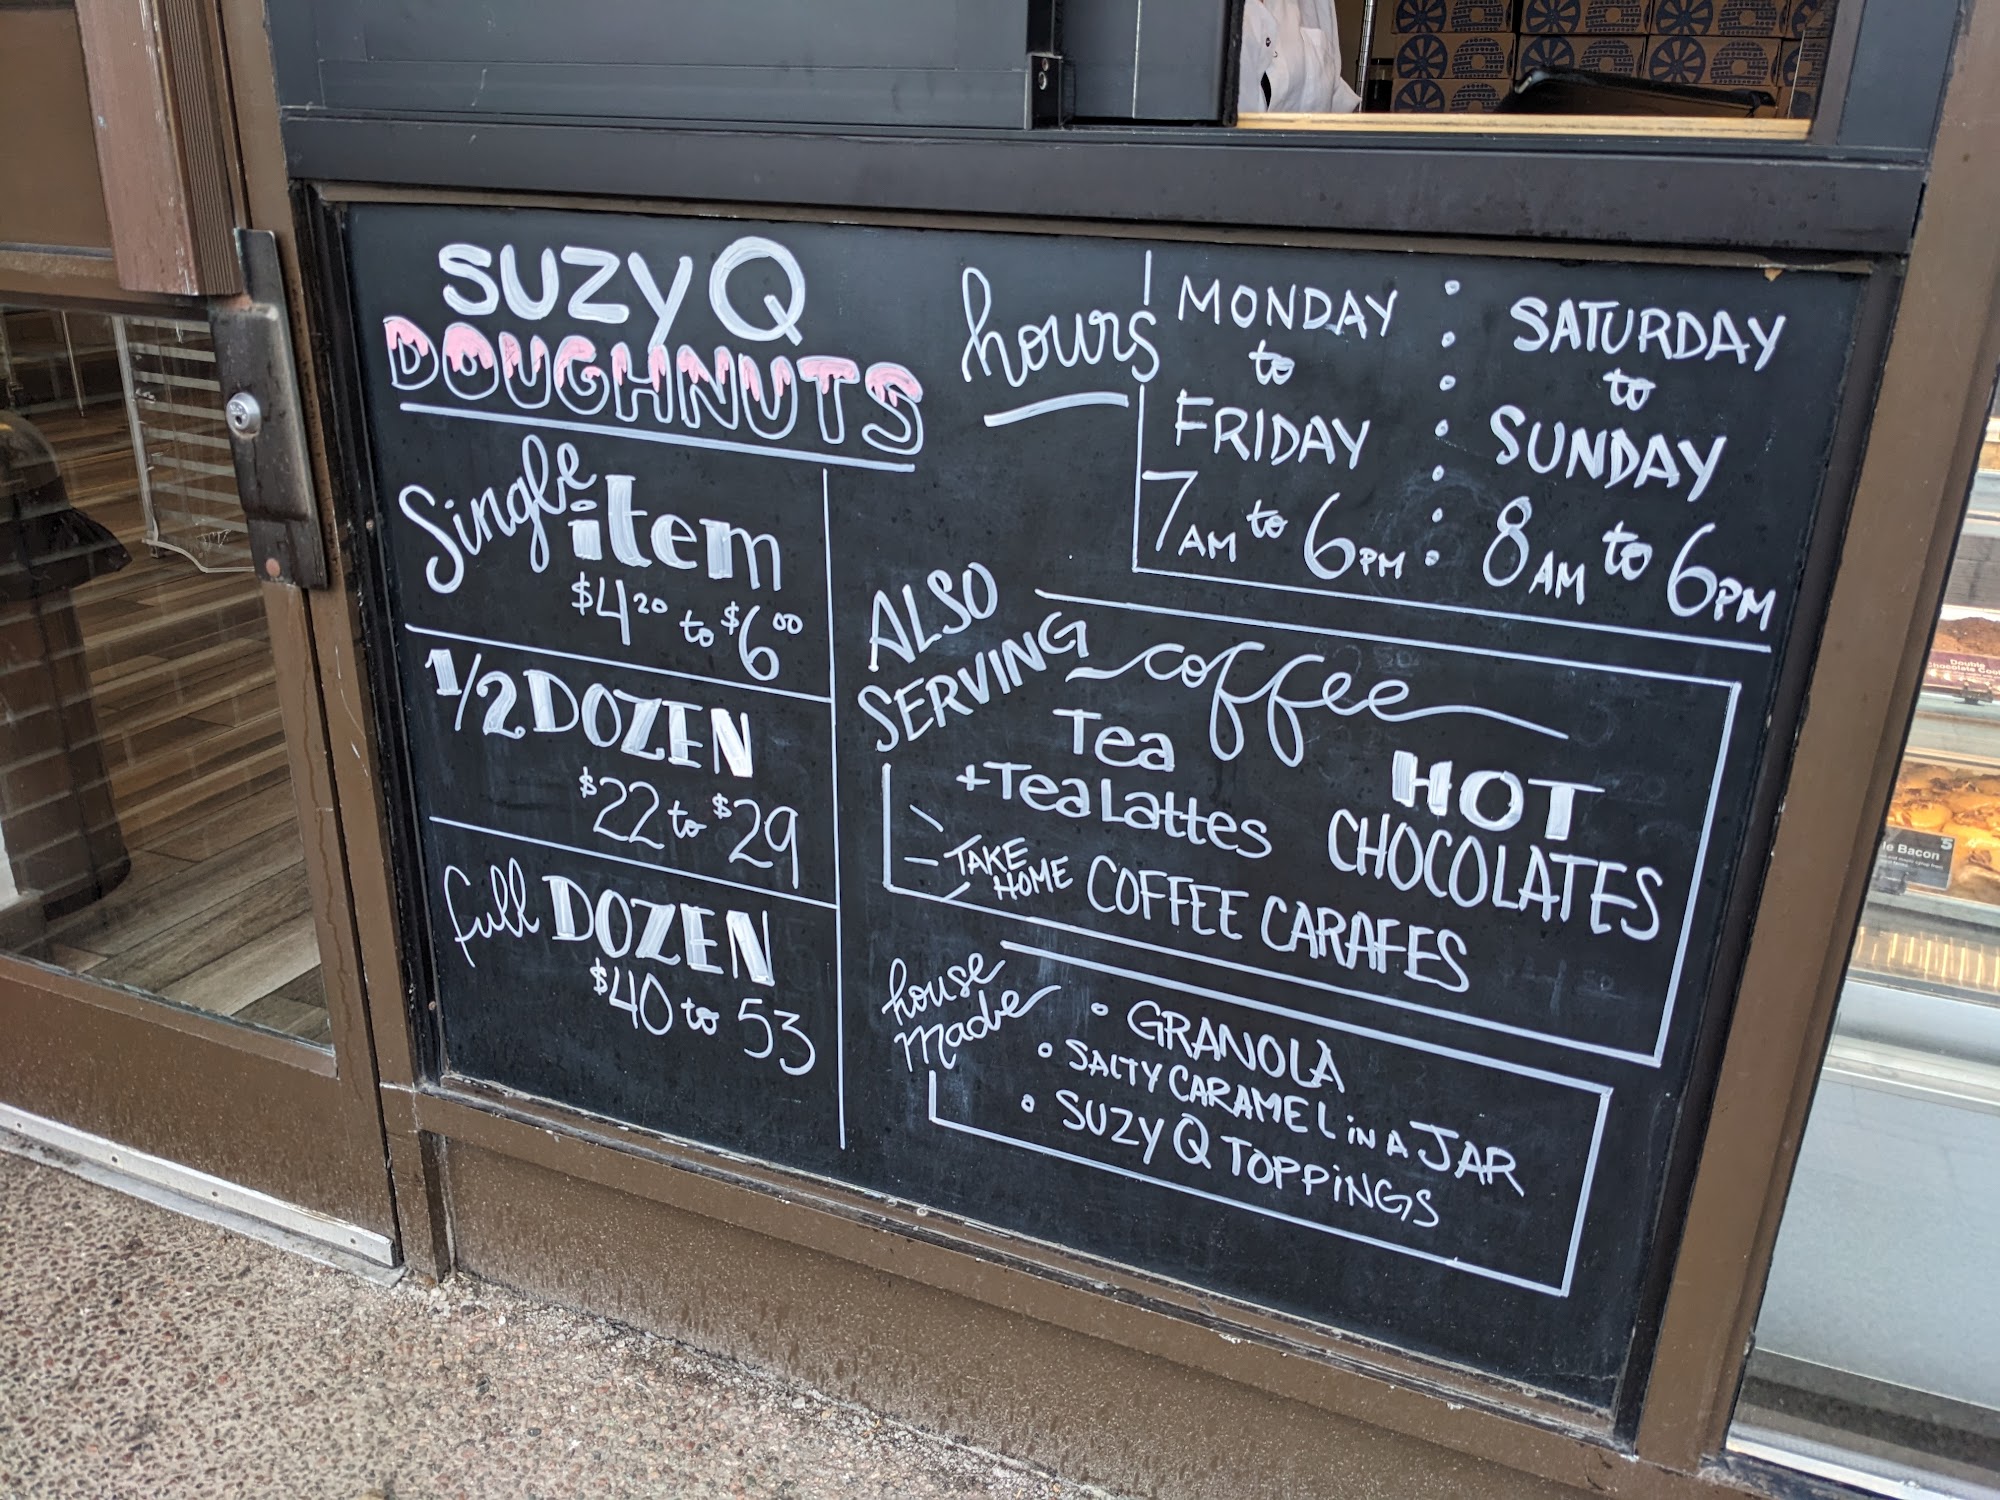 SUZY Q
DOUGHNUTS
Single item
$4.20 to $6.00
1/2 DOZEN
$22 to $29
full DOZEN
$40 to 53
hours
MONDAY
to
FRIDAY
7AM to 6PM
SATURDAY
to
SUNDAY
8AM to 6PM
ALSO
SERVING
coffee
Tea
+Tea Lattes
HOT
CHOCOLATES
TAKE
HOME
COFFEE CARAFES
house
made
• GRANOLA
• SALTY CARAMEL IN A JAR
• SUZY Q TOPPINGS
Double
Bacon
5